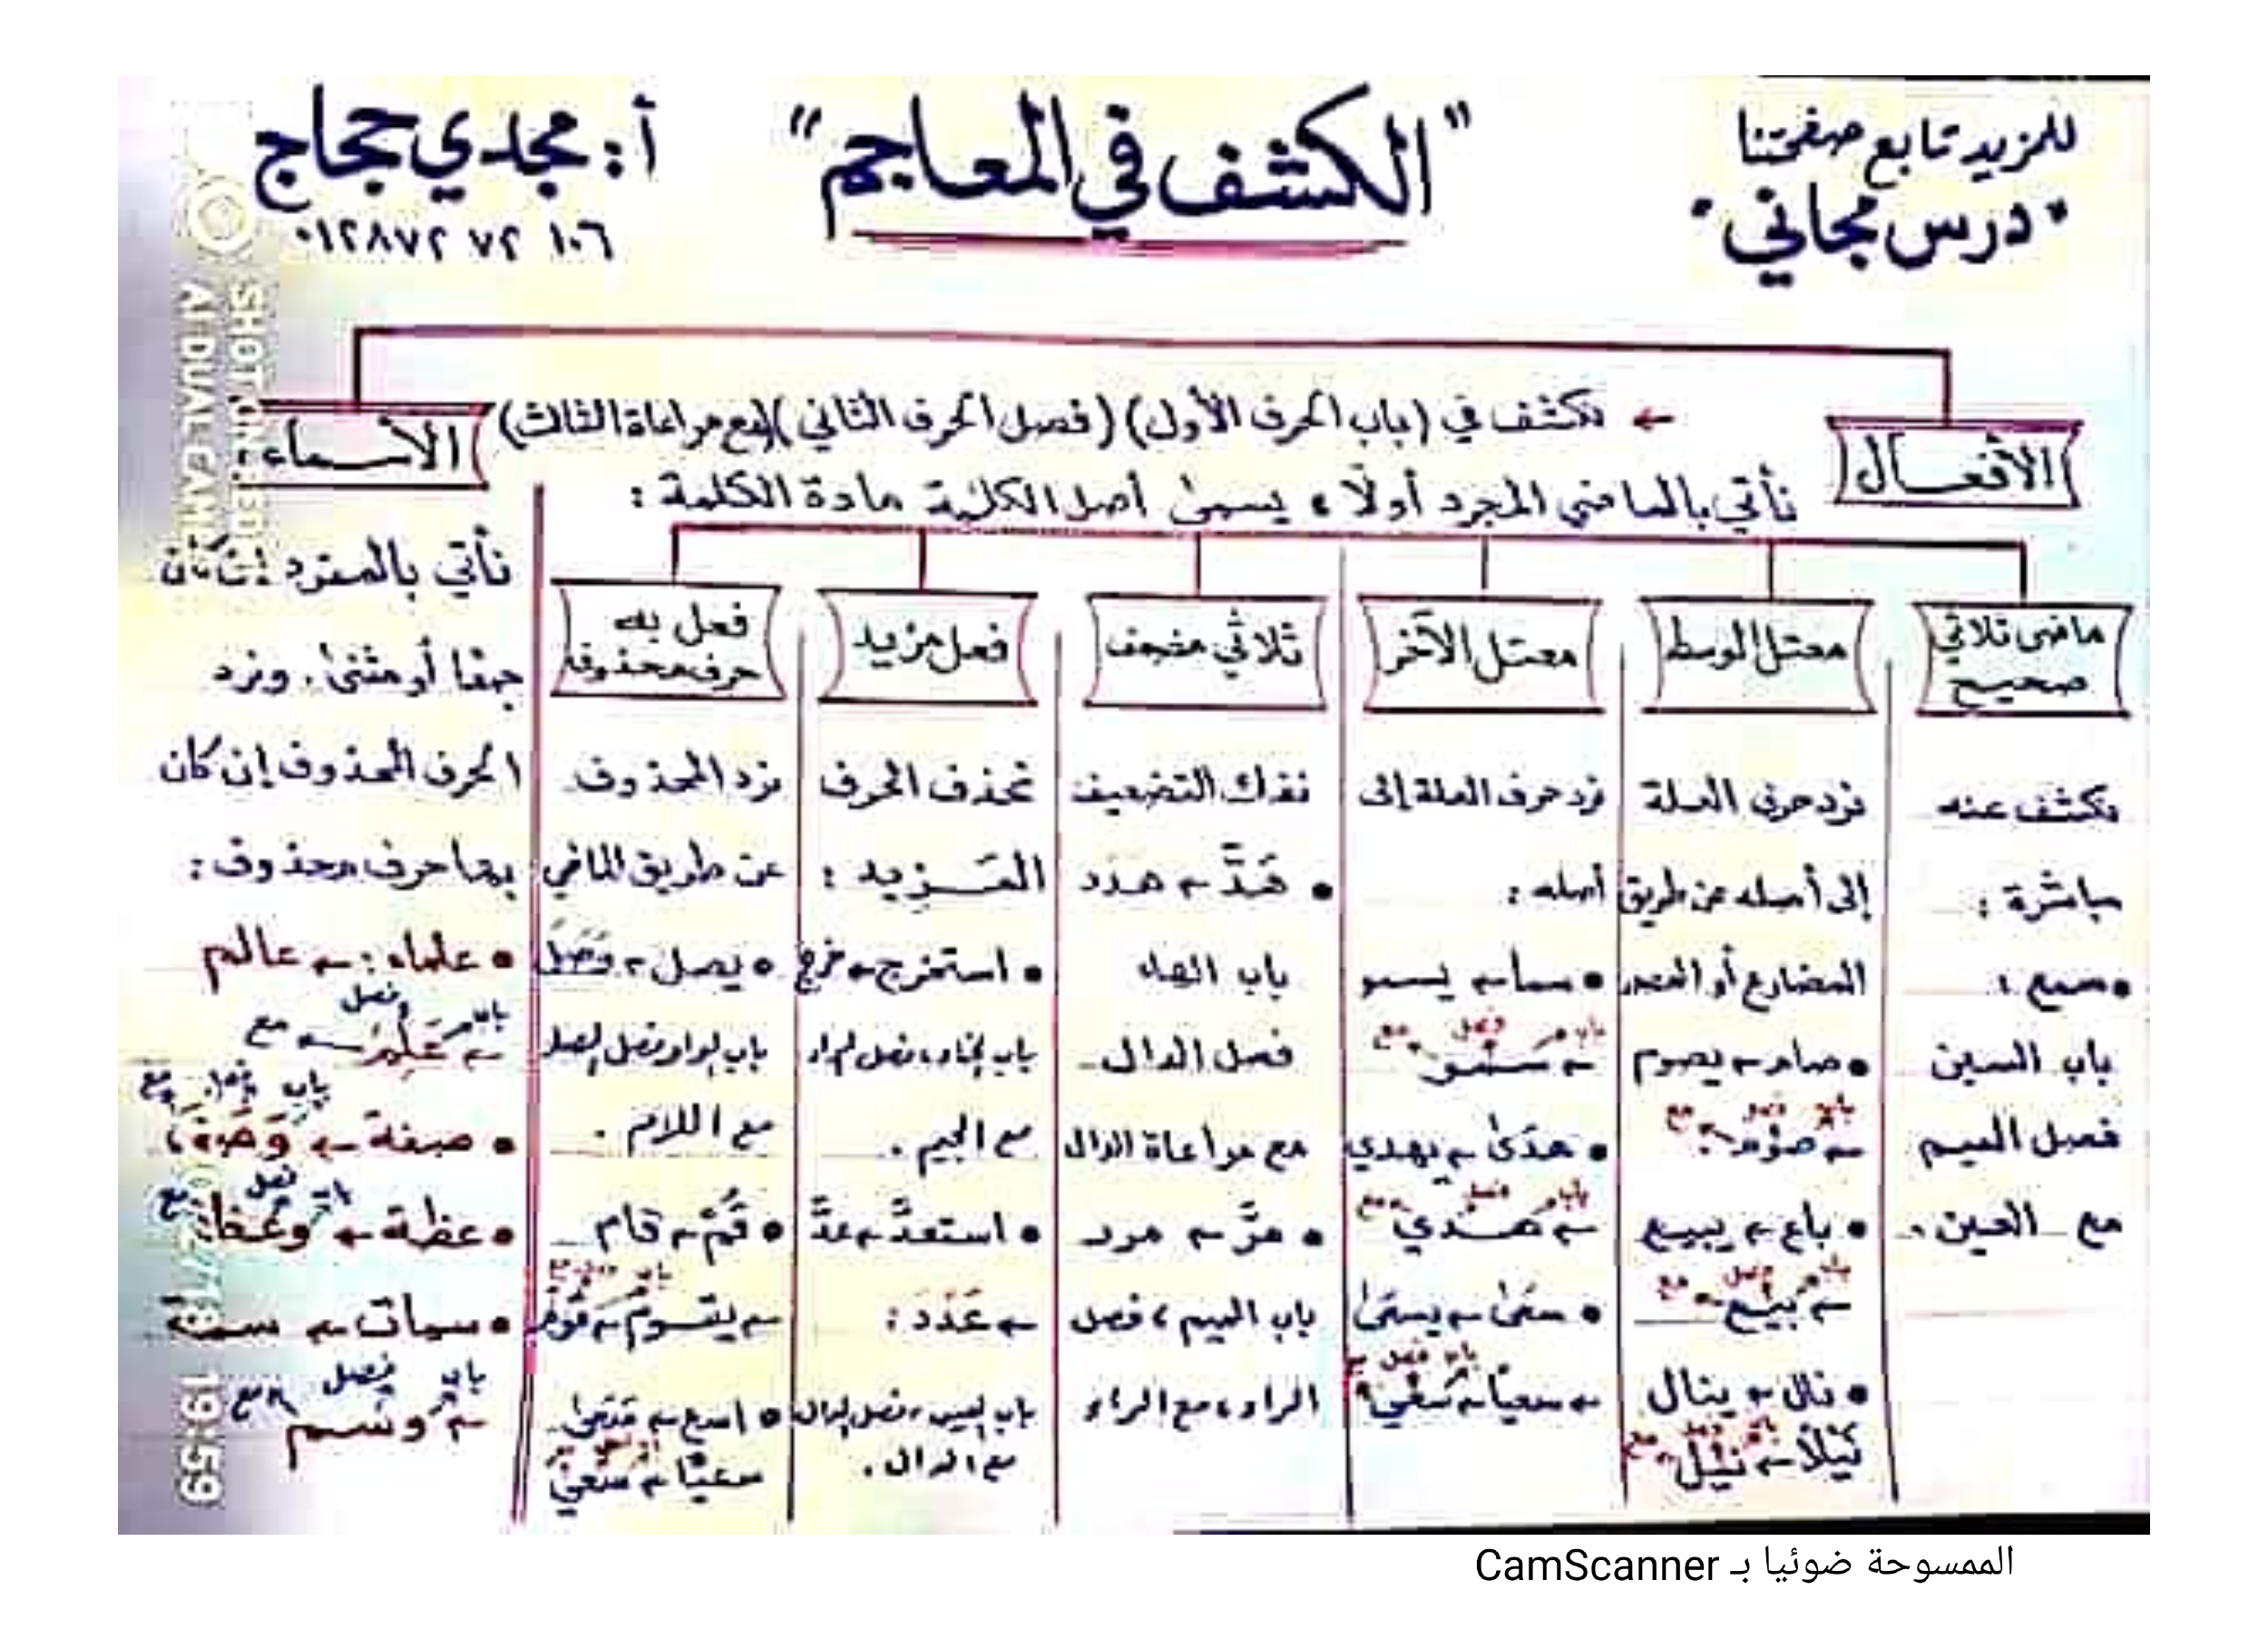 للمزيد تابع صفحتنا
"درس مجاني"
"الكشف في المعاجم"
أ: مجدي حجاج
٠١٢٨٧٢ ٧٢ ١٠٦
← نكشف في (باب الحرف الأول) (فصل الحرف الثاني) (مع مراعاة الثالث)
الأفعال
نأتي بالماضي المجرد أولًا، يسمى أصل الكلمة مادة الكلمة:
ماضى ثلاثي
صحيح
نكشف عنه
مباشرة:
• سمع:
باب السين
فصل الميم
مع العين.
معتل الوسط
نرد حرف العلة
إلى أصله عن طريق
المضارع أو المصدر
• صام ← يصوم
باب فصل مع
← صوم.
• باع ← يبيع
باب فصل مع
← بيع
• نال ← ينال
باب فصل مع
نيلًا ← نيل
معتل الآخر
نرد حرف العلة إلى
أصله:
• سما ← يسمو
باب فصل مع
← سمو
• هدى ← يهدي
باب فصل مع
← هدي
• سعى ← يسعى
باب فصل مع
← سعيًا ← سعي
ثلاثي مضعف
نفك التضعيف
• هدَّ ← هدد
باب الهاء
فصل الدال
مع مراعاة الدال
• مرَّ ← مرر
باب الميم، فصل
الراء، مع الراء
فعل مزيد
نحذف الحرف
المزيد:
• استخرج ← خرج
باب الخاء، فصل الراء
مع الجيم.
• استعدَّ ← عدَّ
← عَدَدَ:
باب العين، فصل الدال
مع الدال.
فعل به
حرف محذوف
نرد المحذوف
عن طريق الماضي
• يصل ← وَصَلَ
باب الواو فصل الصاد
مع اللام.
• قُمْ ← قام
← يقوم ← قوم
• اسع ←
سعيًا ← سعي
الأسماء:
نأتي بالمفرد إن كان
جمعًا أو مثنى. ونرد
الحرف المحذوف إن كان
بها حرف محذوف:
• علماء: ← عالم
باب وفصل مع
← عَلِمَ
باب فصل مع
• صفة ← وَصَفَ
باب فصل مع
• عظة ← وعظ
• سمات ← سمة
باب فصل مع
← وسم
SHOT ON REDMI
AI DUAL CAMERA
19:59
الممسوحة ضوئيا بـ CamScanner